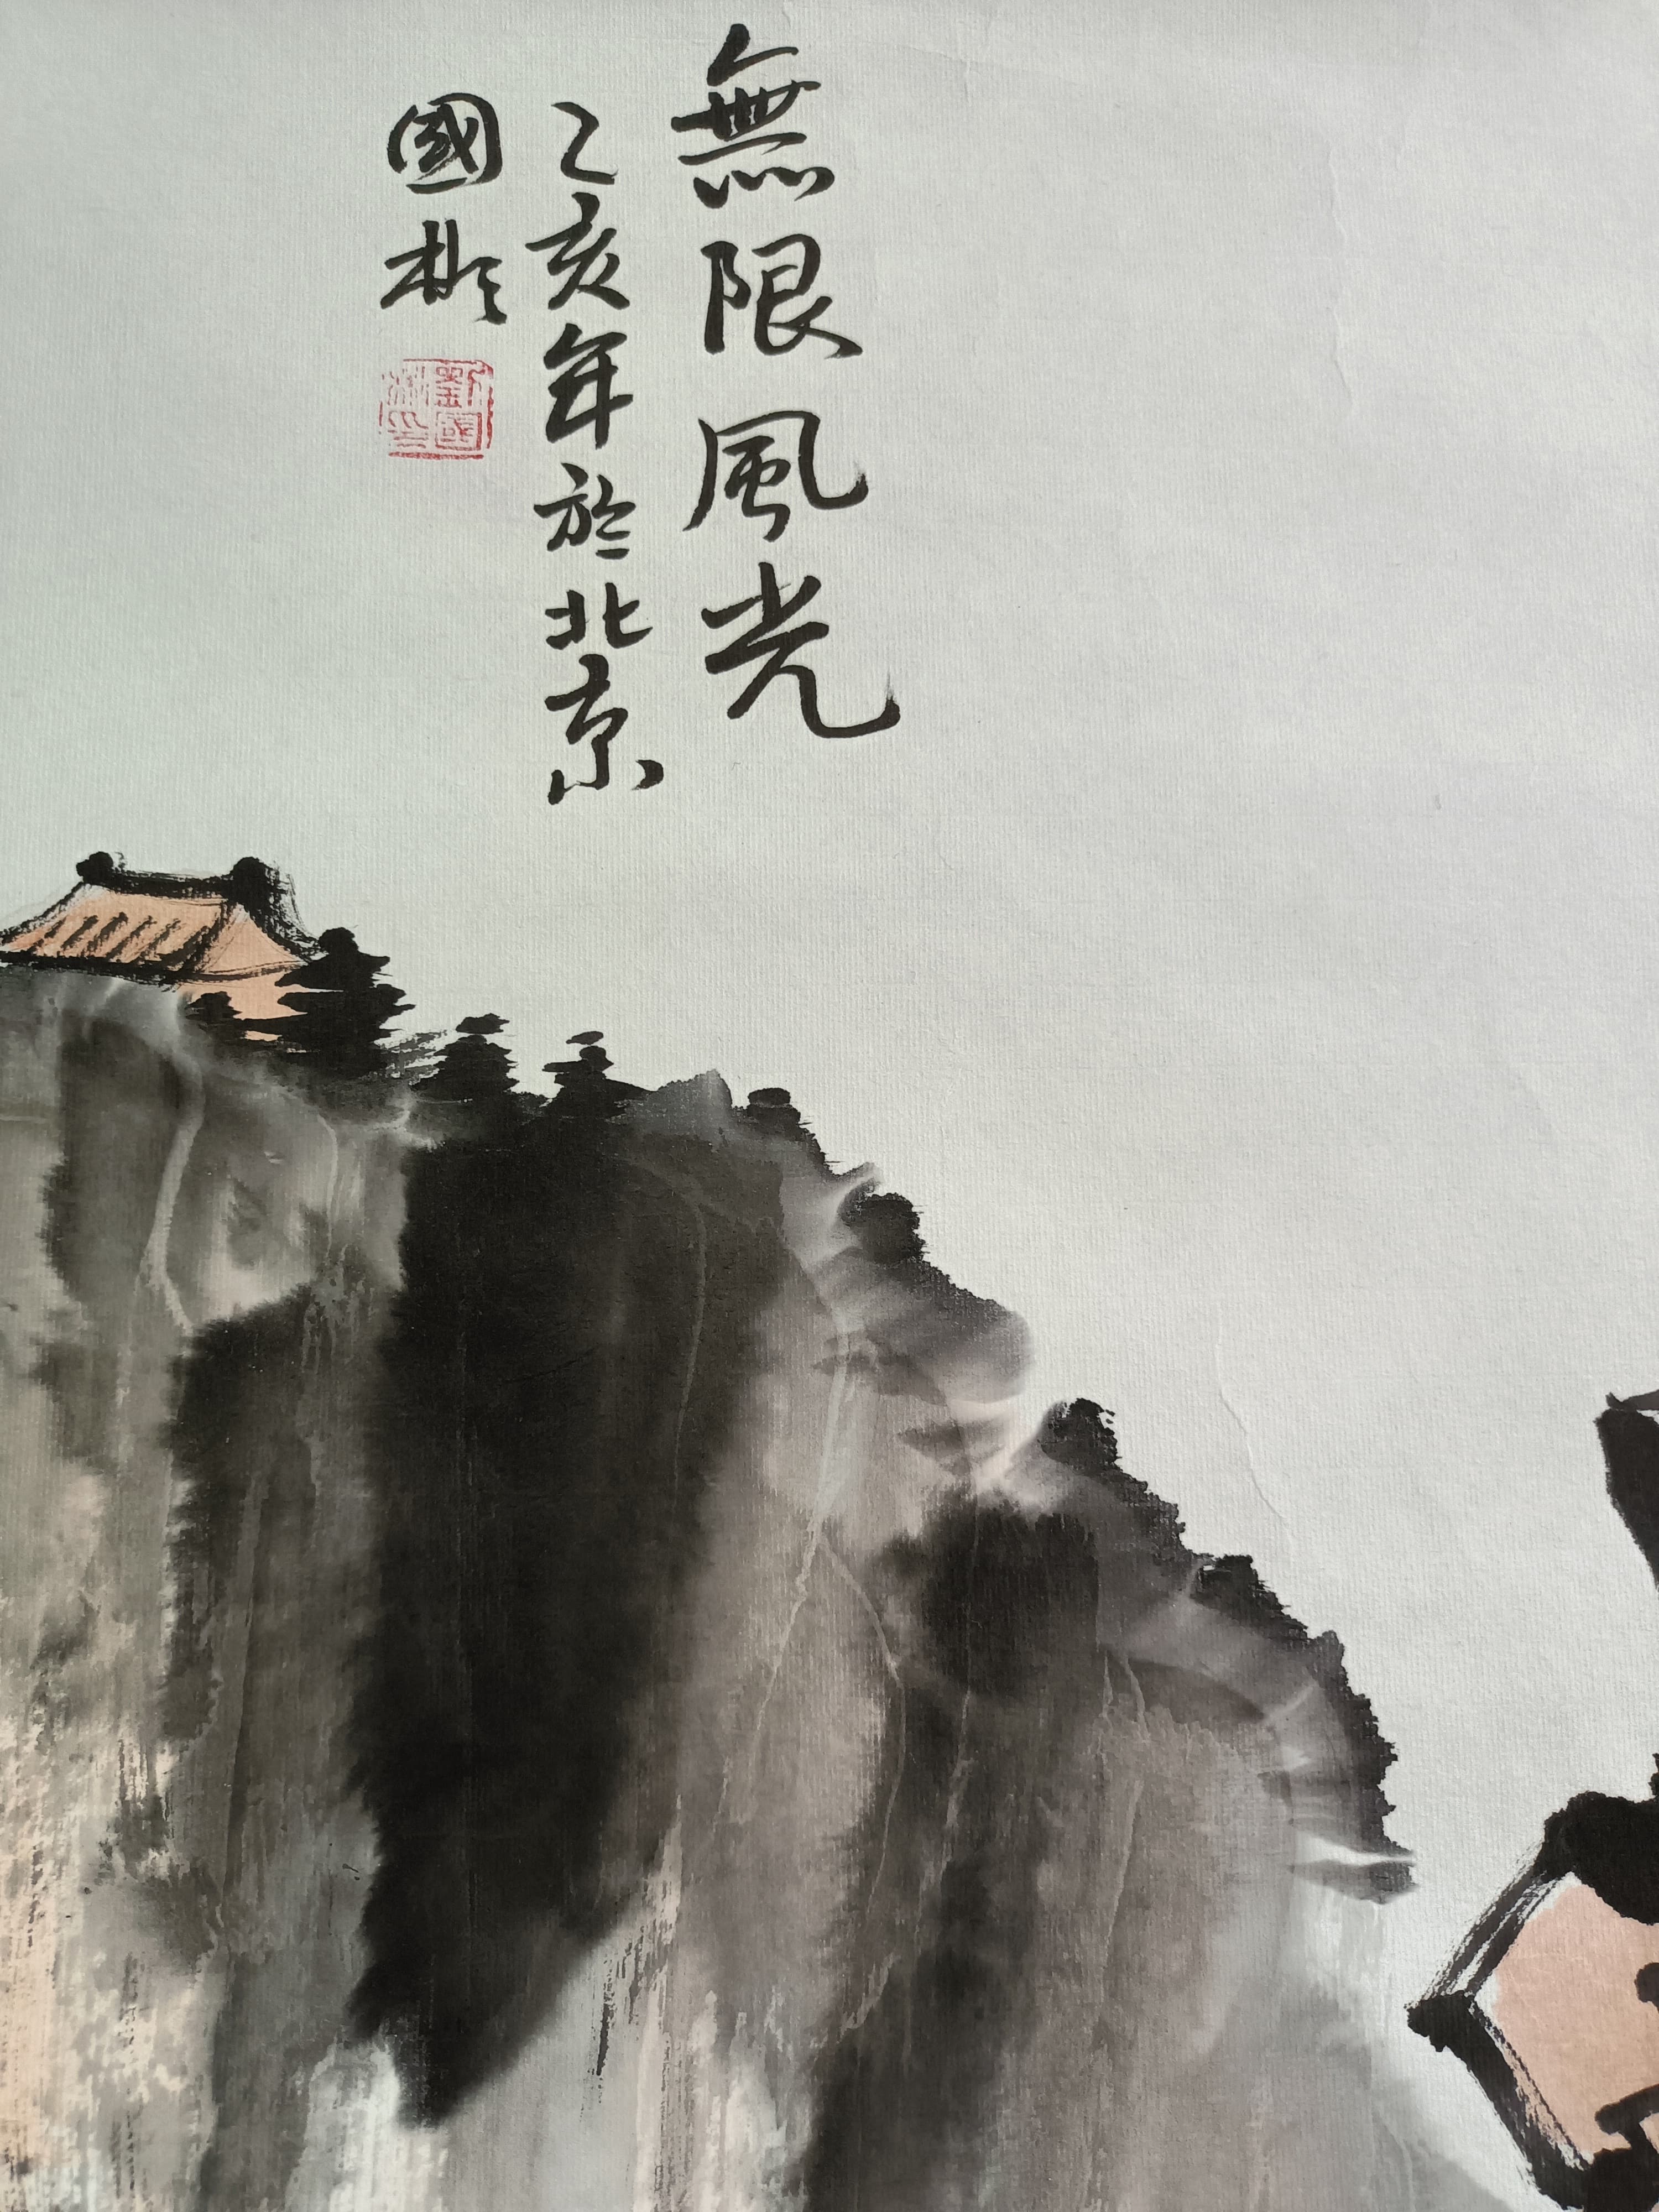 無限風光
乙亥年於北京
國彬
劉國彬印